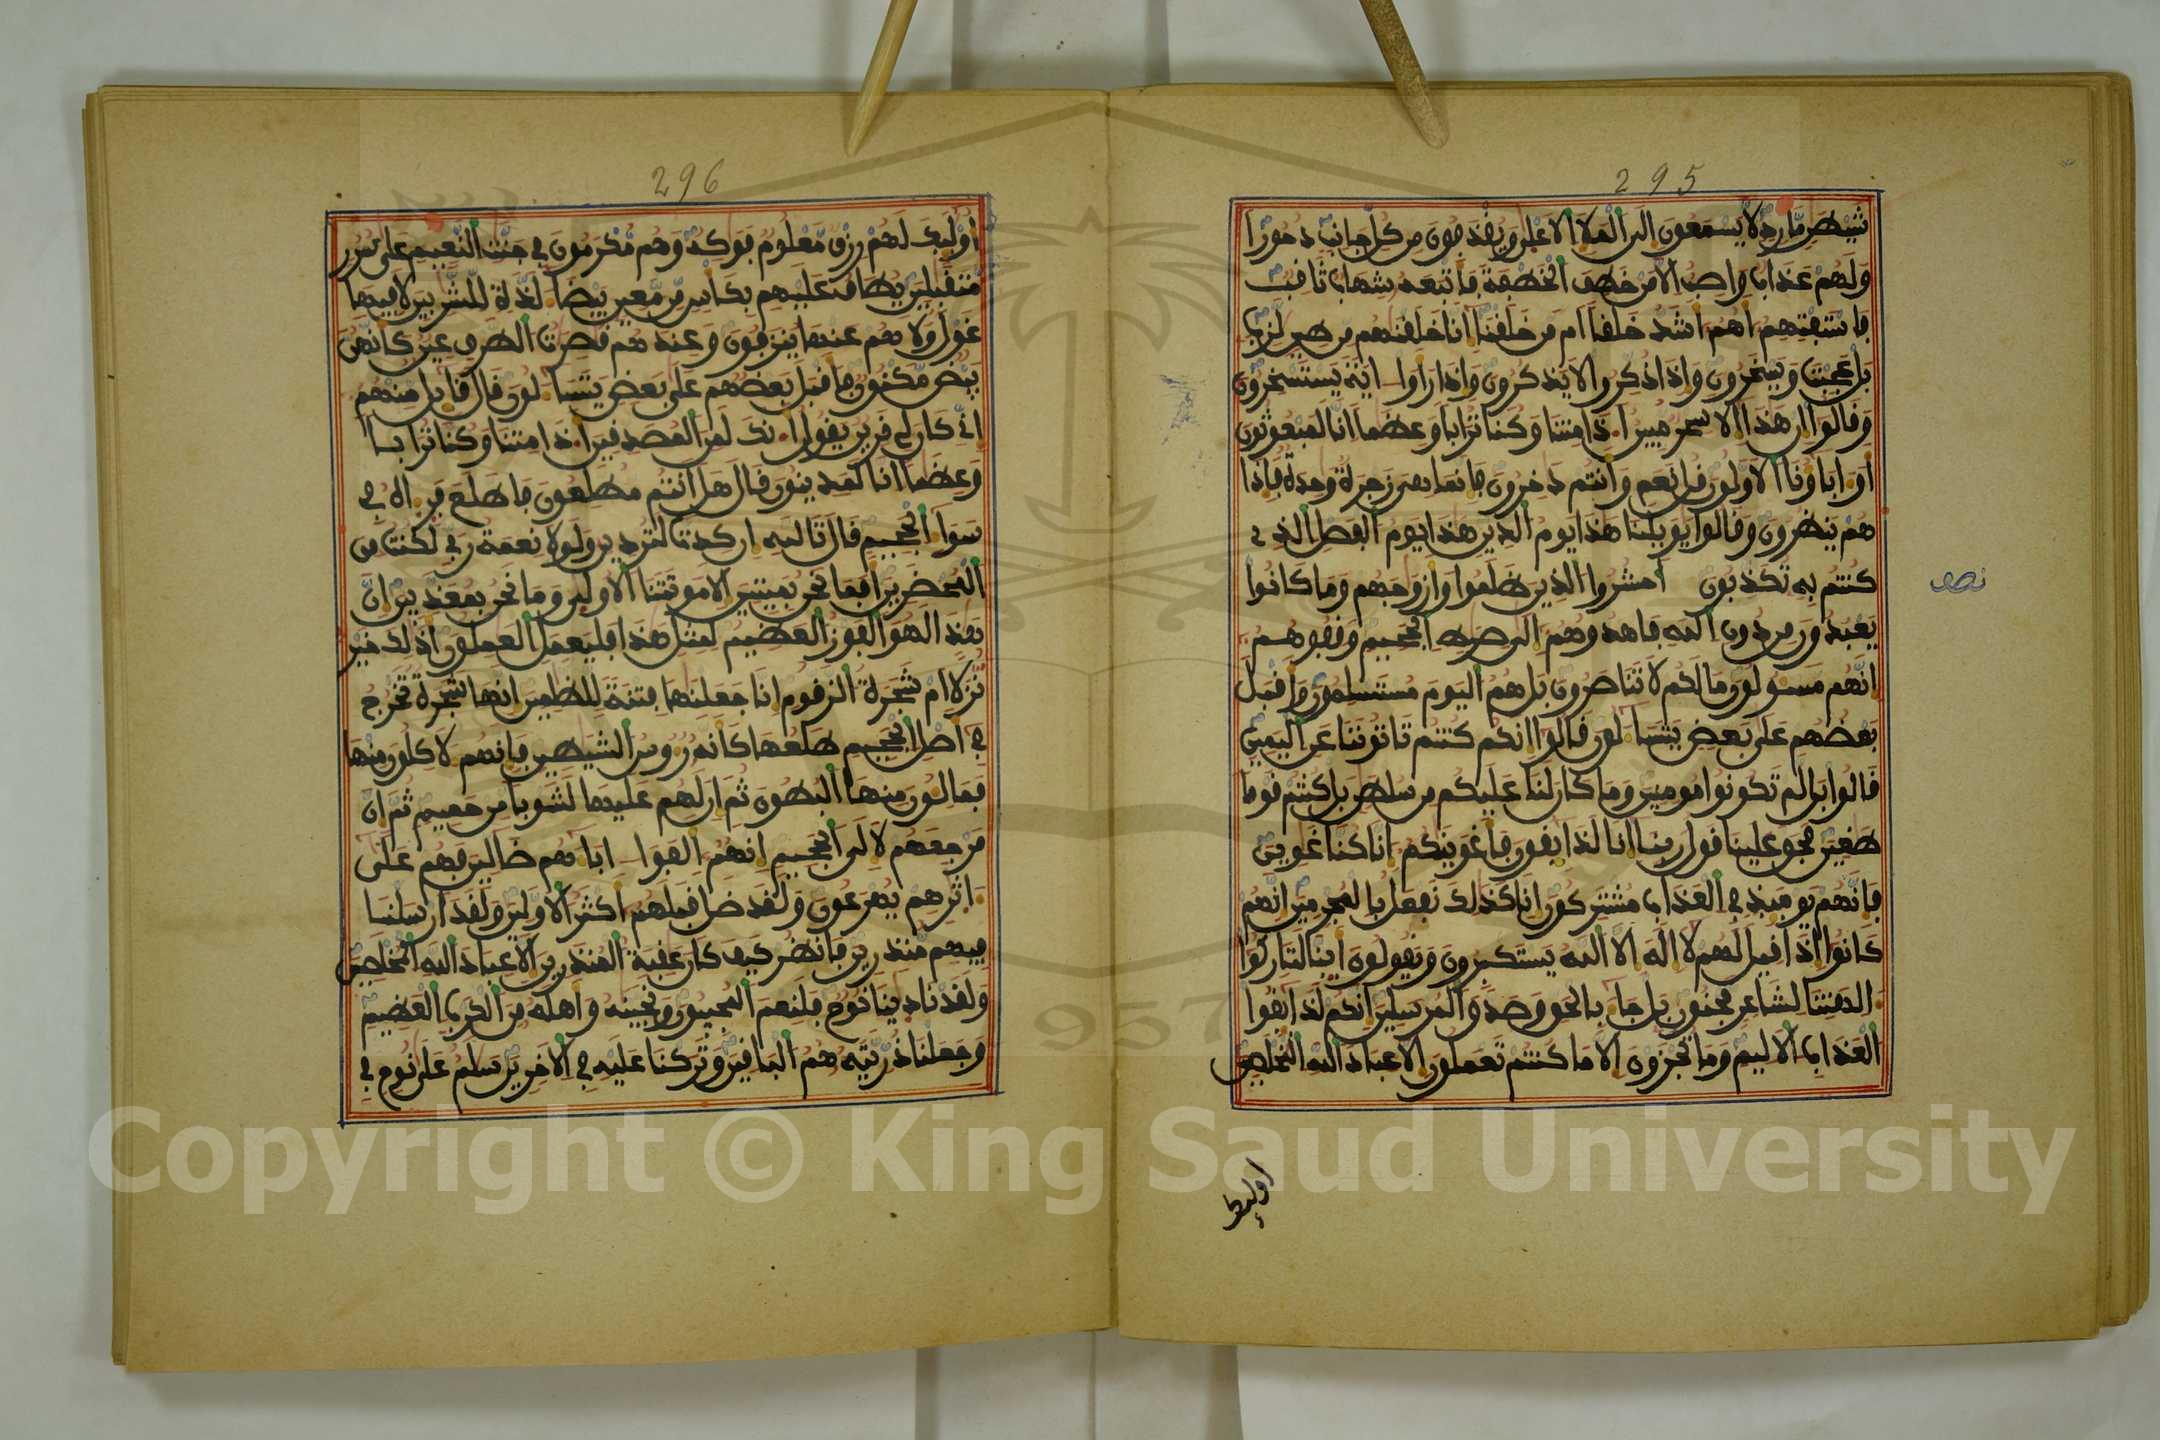 295
شيطن مارد لا يسمعون الى الملإ الاعلى ويقذفون من كل جانب دحورا
ولهم عذاب واصب الا من خطف الخطفة فاتبعه شهاب ثاقب
فاستفتهم اهم اشد خلقا ام من خلقنا انا خلقنهم من طين لازب
بل عجبت ويسخرون واذا ذكروا لا يذكرون واذا راوا اية يستسخرون
وقالوا ان هذا الا سحر مبين اذا متنا وكنا ترابا وعظما انا لمبعوثون
او اباونا الاولون قل نعم وانتم دخرون فانما هي زجرة وحدة فاذا
هم ينظرون وقالوا يويلنا هذا يوم الدين هذا يوم الفصل الذي
كنتم به تكذبون احشروا الذين ظلموا وازوجهم وما كانوا
نصف
يعبدون من دون الله فاهدوهم الى صرط الجحيم وقفوهم
انهم مسولون ما لكم لا تناصرون بل هم اليوم مستسلمون واقبل
بعضهم على بعض يتساءلون قالوا انكم كنتم تاتوننا عن اليمين
قالوا بل لم تكونوا مومنين وما كان لنا عليكم من سلطن بل كنتم قوما
طغين فحق علينا قول ربنا انا لذايقون فاغوينكم انا كنا غوين
فانهم يوميذ في العذاب مشتركون انا كذلك نفعل بالمجرمين انهم
كانوا اذا قيل لهم لا اله الا الله يستكبرون ويقولون اينا لتاركوا
الهتنا لشاعر مجنون بل جاء بالحق وصدق المرسلين انكم لذايقوا
العذاب الاليم وما تجزون الا ما كنتم تعملون الا عباد الله المخلصين
اوليك
296
اوليك لهم رزق معلوم فوكه وهم مكرمون في جنت النعيم على سرر
متقبلين يطاف عليهم بكاس من معين بيضاء لذة للشربين لا فيها
غول ولا هم عنها ينزفون وعندهم قصرت الطرف عين كانهن
بيض مكنون فاقبل بعضهم على بعض يتساءلون قال قايل منهم
اني كان لي قرين يقول اءنك لمن المصدقين اءذا متنا وكنا ترابا
وعظما انا لمدينون قال هل انتم مطلعون فاطلع فرءاه في
سواء الجحيم قال تالله ان كدت لتردين ولولا نعمة ربي لكنت من
المحضرين افما نحن بميتين الا موتتنا الاولى وما نحن بمعذبين ان
هذا لهو الفوز العظيم لمثل هذا فليعمل العملون اذلك خير
نزلا ام شجرة الزقوم انا جعلنها فتنة للظلمين انها شجرة تخرج
في اصل الجحيم طلعها كانه روس الشيطين فانهم لاكلون منها
فمالون منها البطون ثم ان لهم عليها لشوبا من حميم ثم ان
مرجعهم لإلى الجحيم انهم الفوا اباءهم ضالين فهم على
اثرهم يهرعون ولقد ضل قبلهم اكثر الاولين ولقد ارسلنا
فيهم منذرين فانظر كيف كان عقبة المنذرين الا عباد الله المخلصين
ولقد نادينا نوح فلنعم المجيبون ونجينه واهله من الكرب العظيم
وجعلنا ذريته هم الباقين وتركنا عليه في الاخرين سلم على نوح في
957
Copyright © King Saud University